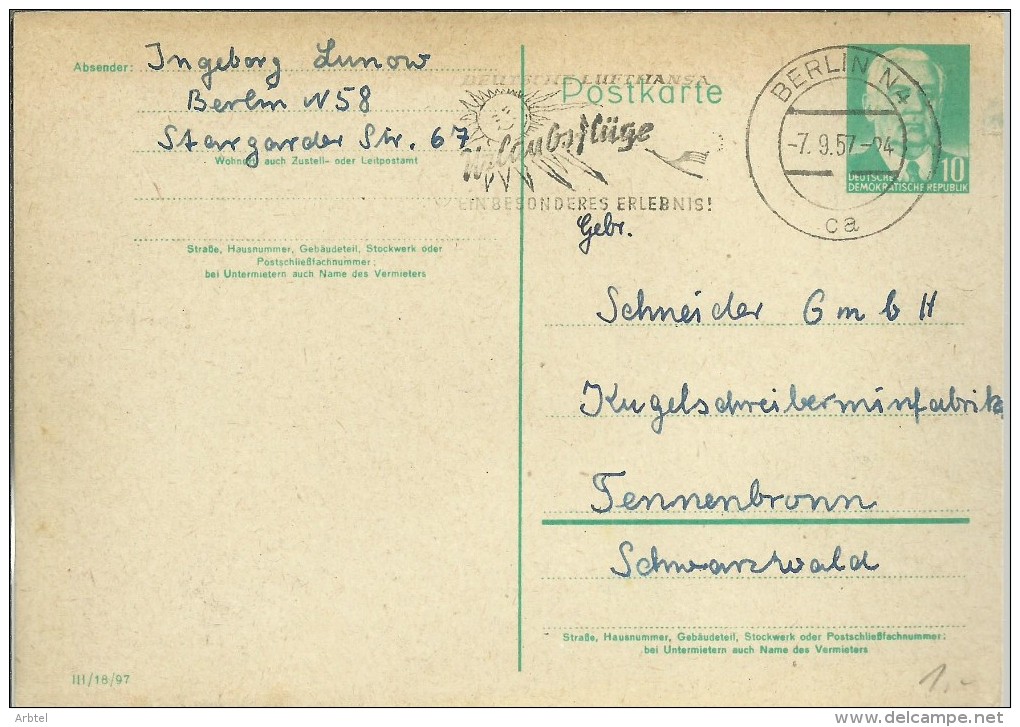 Absender: Ingeborg Lunow
Berlin N58
Stargarder Str. 67.
Wohnort, auch Zustell- oder Leitpostamt
Straße, Hausnummer, Gebäudeteil, Stockwerk oder
Postschließfachnummer;
bei Untermietern auch Name des Vermieters
III/18/97
DEUTSCHE LUFTHANSA
Postkarte
Urlaubsflüge
EIN BESONDERES ERLEBNIS!
BERLIN N4
-7.9.57-24
ca
10
DEUTSCHE
DEMOKRATISCHE REPUBLIK
Gebr.
Schneider GmbH
Kugelschreiberminfabrik
Tennenbronn
Schwarzwald
Straße, Hausnummer, Gebäudeteil, Stockwerk oder Postschließfachnummer;
bei Untermietern auch Name des Vermieters
1.-
Arbtel
delcampe.net